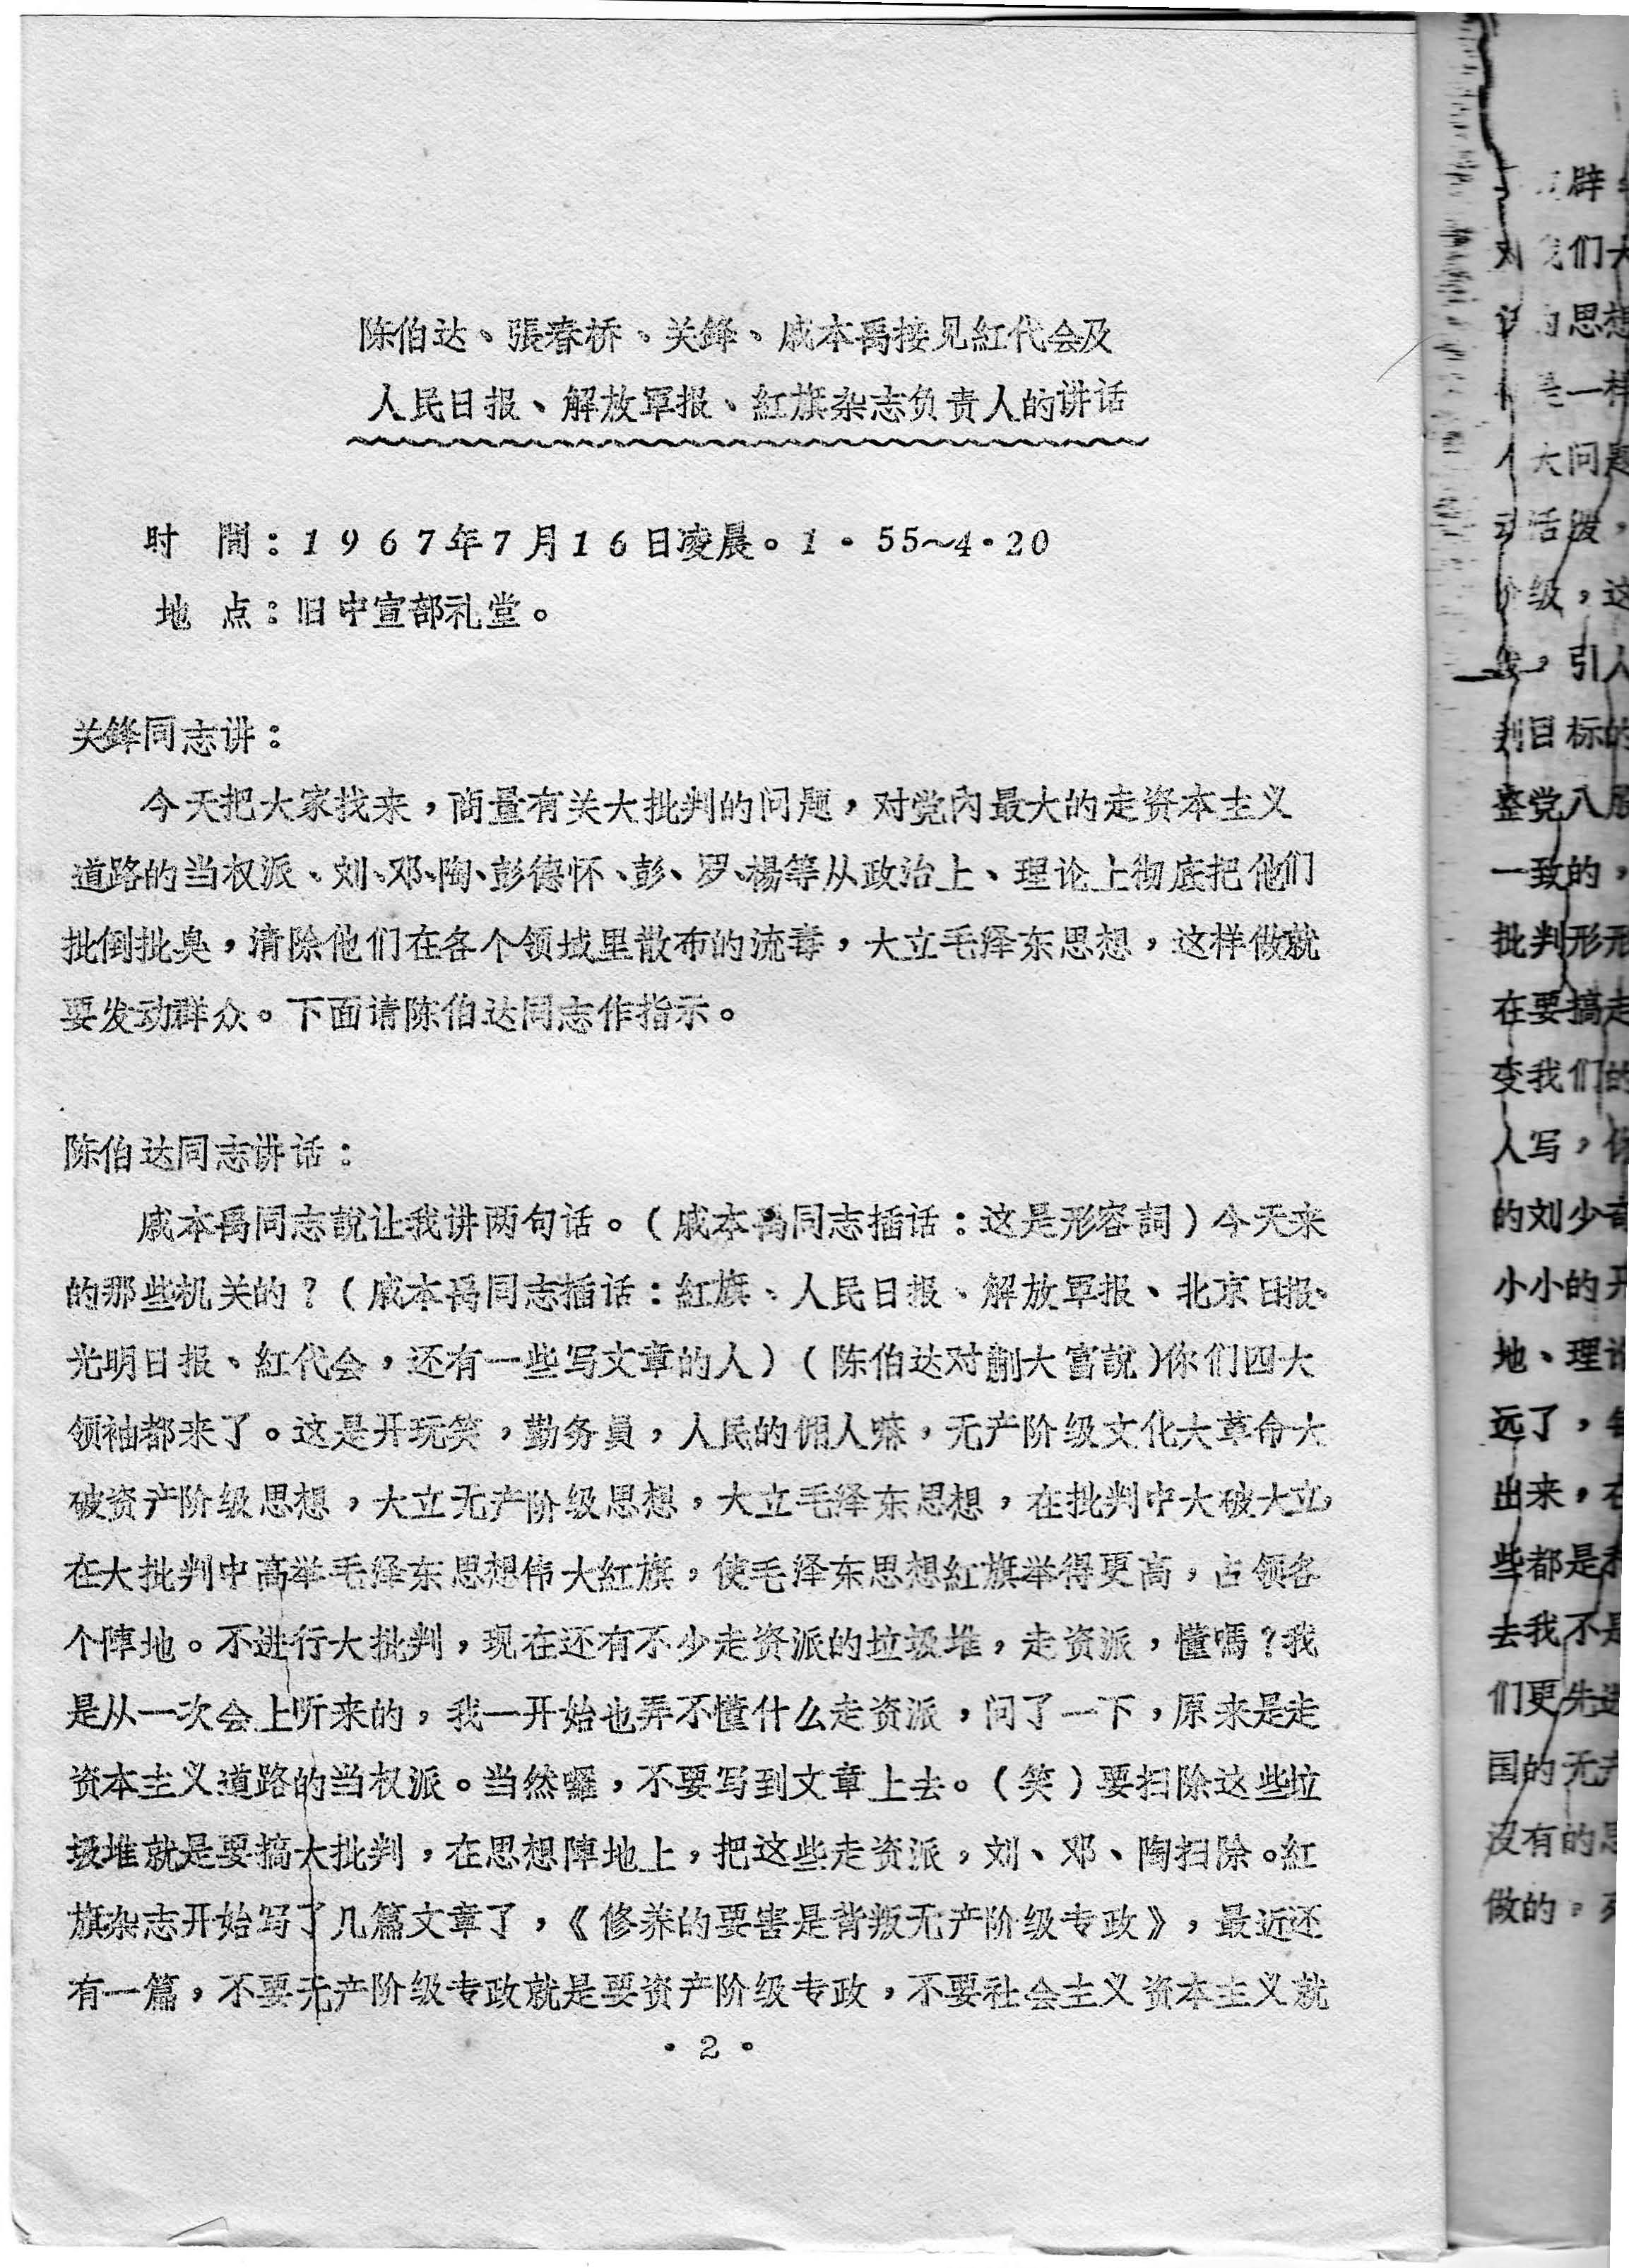 陈伯达、張春桥、关鋒、戚本禹接见紅代会及
人民日报、解放軍报、紅旗杂志负责人的讲话
时　間：１９６７年７月１６日凌晨。１·55～4·20
地　点：旧中宣部礼堂。
关鋒同志讲：
今天把大家找来，商量有关大批判的问题，对党內最大的走资本主义
道路的当权派、刘、邓、陶、彭德怀、彭、罗、楊等从政治上、理论上彻底把他们
批倒批臭，清除他们在各个领域里散布的流毒，大立毛泽东思想，这样做就
要发动群众。下面请陈伯达同志作指示。
陈伯达同志讲话：
戚本禹同志說让我讲两句话。（戚本禹同志插话：这是形容詞）今天来
的那些机关的？（戚本禹同志插话：紅旗、人民日报、解放軍报、北京日报、
光明日报、紅代会，还有一些写文章的人）（陈伯达对蒯大富說）你们四大
领袖都来了。这是开玩笑，勤务員，人民的佣人嘛，无产阶级文化大革命大
破资产阶级思想，大立无产阶级思想，大立毛泽东思想，在批判中大破大立，
在大批判中高举毛泽东思想伟大紅旗，使毛泽东思想紅旗举得更高，占领各
个陣地。不进行大批判，现在还有不少走资派的垃圾堆，走资派，懂嗎？我
是从一次会上听来的，我一开始也弄不懂什么走资派，问了一下，原来是走
资本主义道路的当权派。当然囉，不要写到文章上去。（笑）要扫除这些垃
圾堆就是要搞大批判，在思想陣地上，把这些走资派，刘、邓、陶扫除。紅
旗杂志开始写了几篇文章了，《修养的要害是背叛无产阶级专政》，最近还
有一篇，不要无产阶级专政就是要资产阶级专政，不要社会主义资本主义就
·2·
辟
们
思想
是一样
大问题
活泼，
级，这
引人
判目标的
整党八股
一致的，
批判形
在要搞走
变我们的
人写，
的刘少奇
小小的
地、理论
远了，
出来，在
些都是
去我不是
们更先进
国的无产
没有的思
做的。